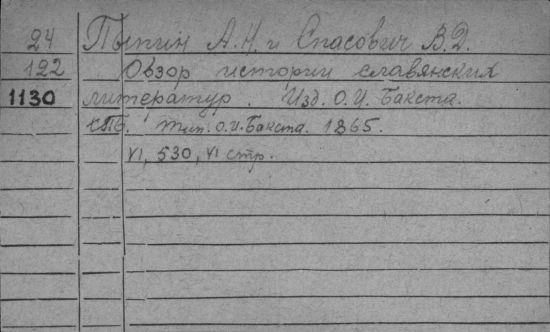 24 Пыпин А.Н. и Спасович В.Д.
122 Обзор истории славянских
1130 литератур. Изд. О.И. Бакста.
СПБ. Тип. О.И. Бакста. 1865.
VI, 530, VI стр.